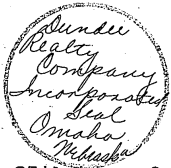 Dundee
Realty
Company
Incorporated
Seal
Omaha
Nebraska